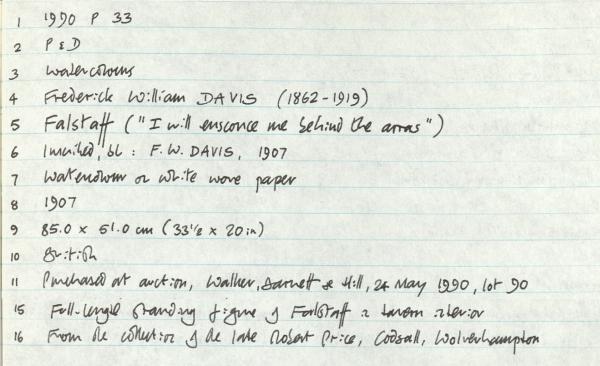 1 1990 P 33
2 P & D
3 Watercolours
4 Frederick William DAVIS (1862-1919)
5 Falstaff ("I will ensconce me behind the arras")
6 Inscribed, bl : F.W. DAVIS, 1907
7 Watercolour on white wove paper
8 1907
9 85.0 x 51.0 cm (33½ x 20 in)
10 British
11 Purchased at auction, Walker, Barnett & Hill, 24 May 1990, lot 90
15 Full-length standing figure of Falstaff in tavern interior
16 From the collection of the late Robert Price, Codsall, Wolverhampton